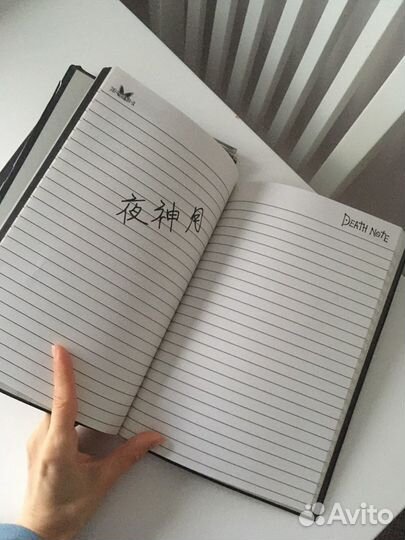 夜神月
DEATH NOTE
Avito